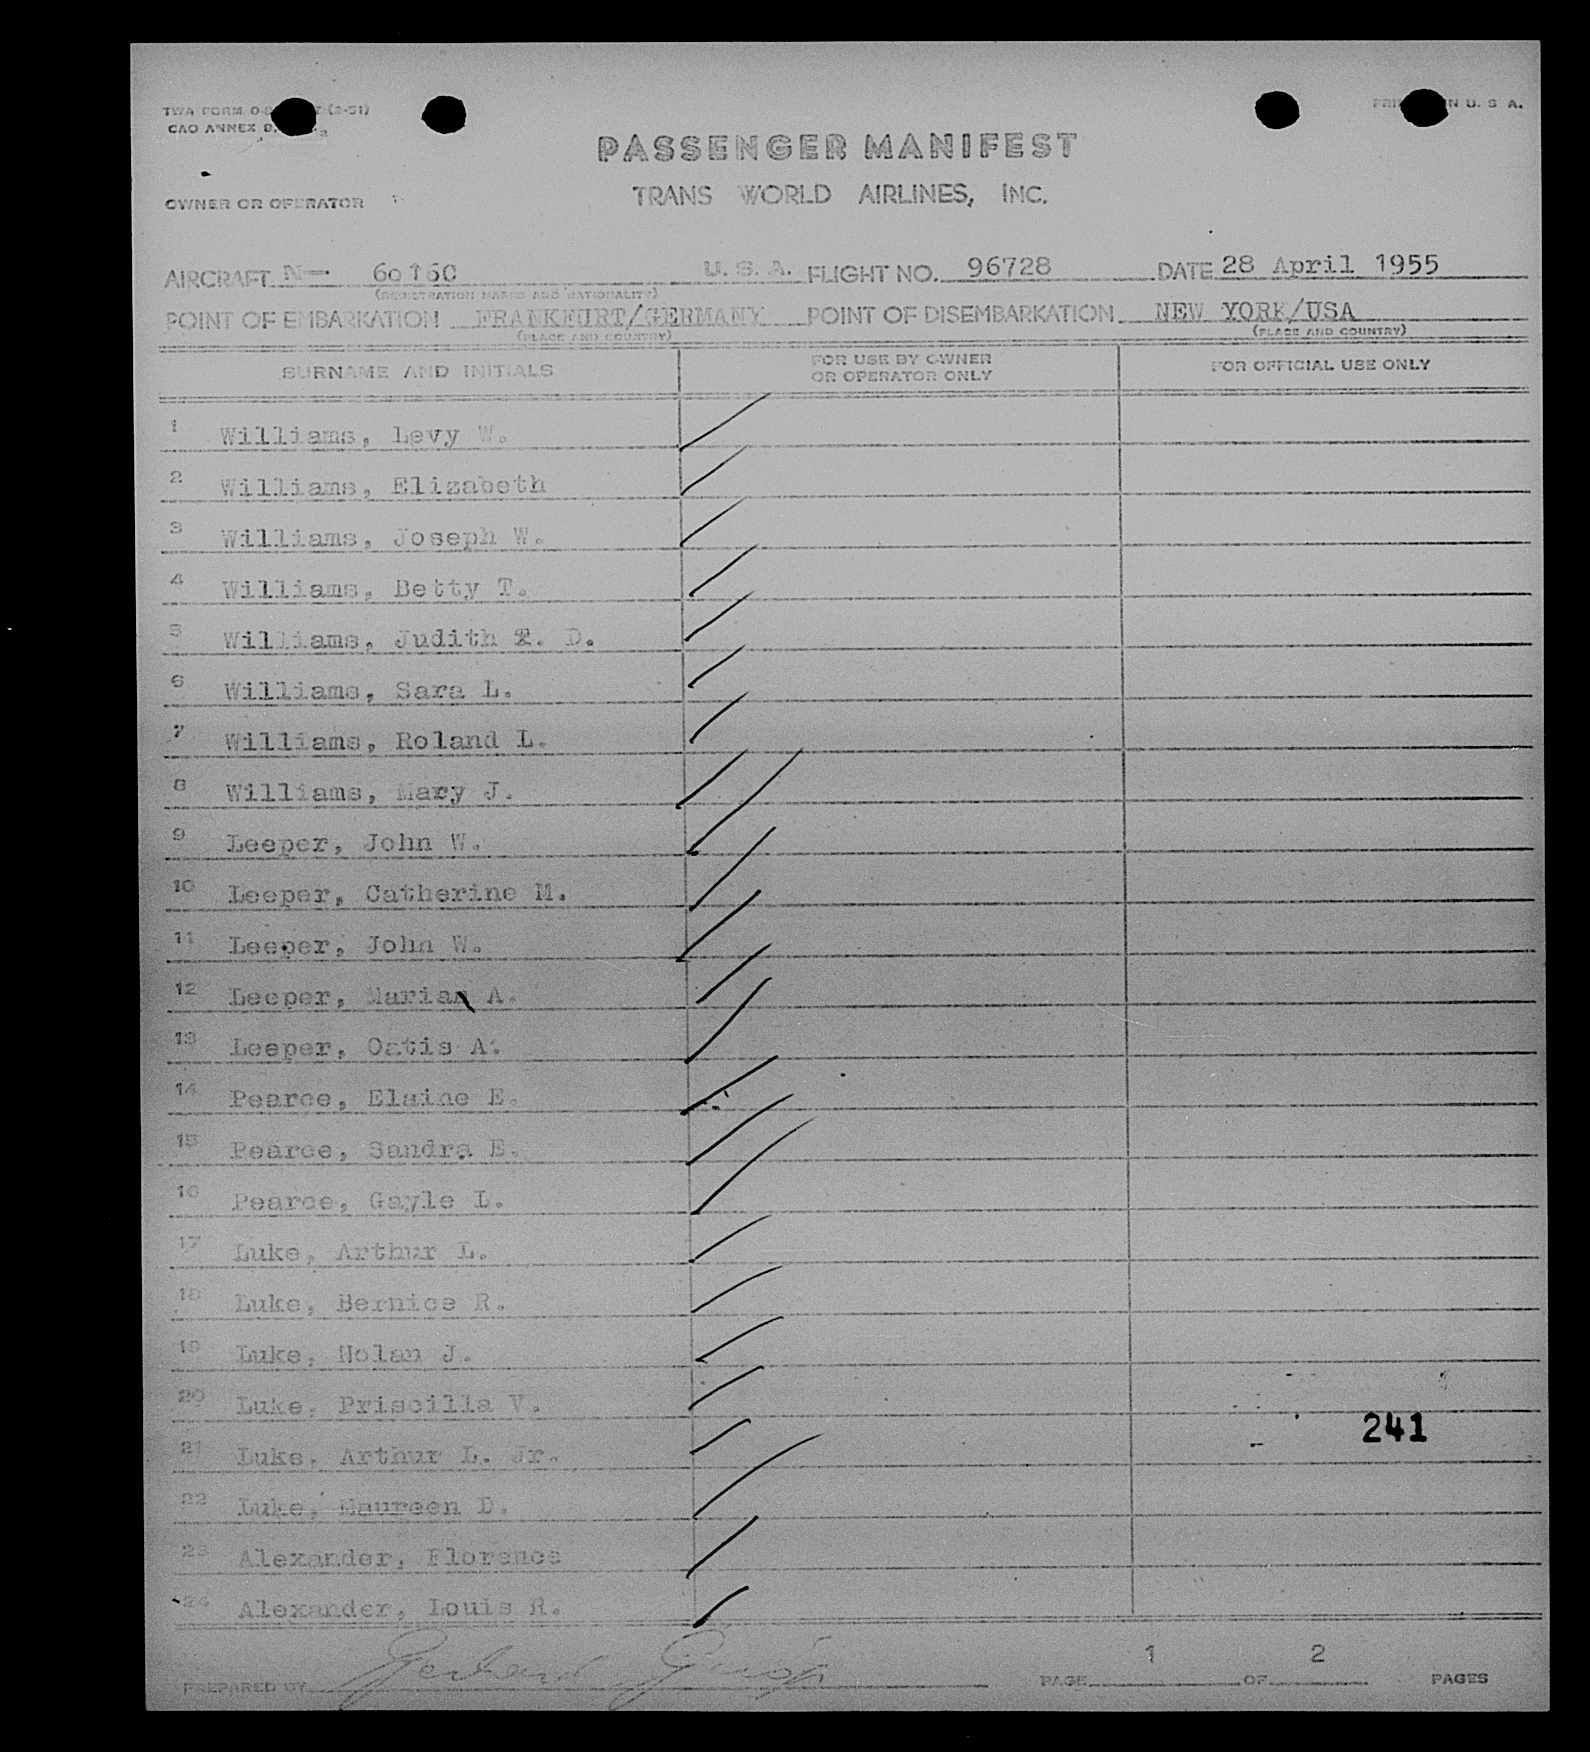 TWA FORM O-
(2-51)
CAO ANNEX 9,
U. S. A.
PASSENGER MANIFEST
TRANS WORLD AIRLINES, INC.
OWNER OR OPERATOR
AIRCRAFT N— 60160 U. S. A. FLIGHT NO. 96728 DATE 28 April 1955
(REGISTRATION MARKS AND NATIONALITY)
POINT OF EMBARKATION FRANKFURT/GERMANY POINT OF DISEMBARKATION NEW YORK/USA
(PLACE AND COUNTRY) (PLACE AND COUNTRY)
SURNAME AND INITIALS FOR USE BY OWNER OR OPERATOR ONLY FOR OFFICIAL USE ONLY
1 Williams, Levy W.
2 Williams, Elizabeth
3 Williams, Joseph W.
4 Williams, Betty T.
5 Williams, Judith D.
6 Williams, Sara L.
7 Williams, Roland L.
8 Williams, Mary J.
9 Leeper, John W.
10 Leeper, Catherine M.
11 Leeper, John W.
12 Leeper, Marian A.
13 Leeper, Oatis A.
14 Pearce, Elaine E.
15 Pearce, Sandra E.
16 Pearce, Gayle L.
17 Luke, Arthur L.
18 Luke, Bernice R.
19 Luke, Nolan J.
20 Luke, Priscilla V.
241
21 Luke, Arthur L. Jr.
22 Luke, Maureen D.
23 Alexander, Florence
24 Alexander, Louis R.
PREPARED BY PAGE 1 OF 2 PAGES